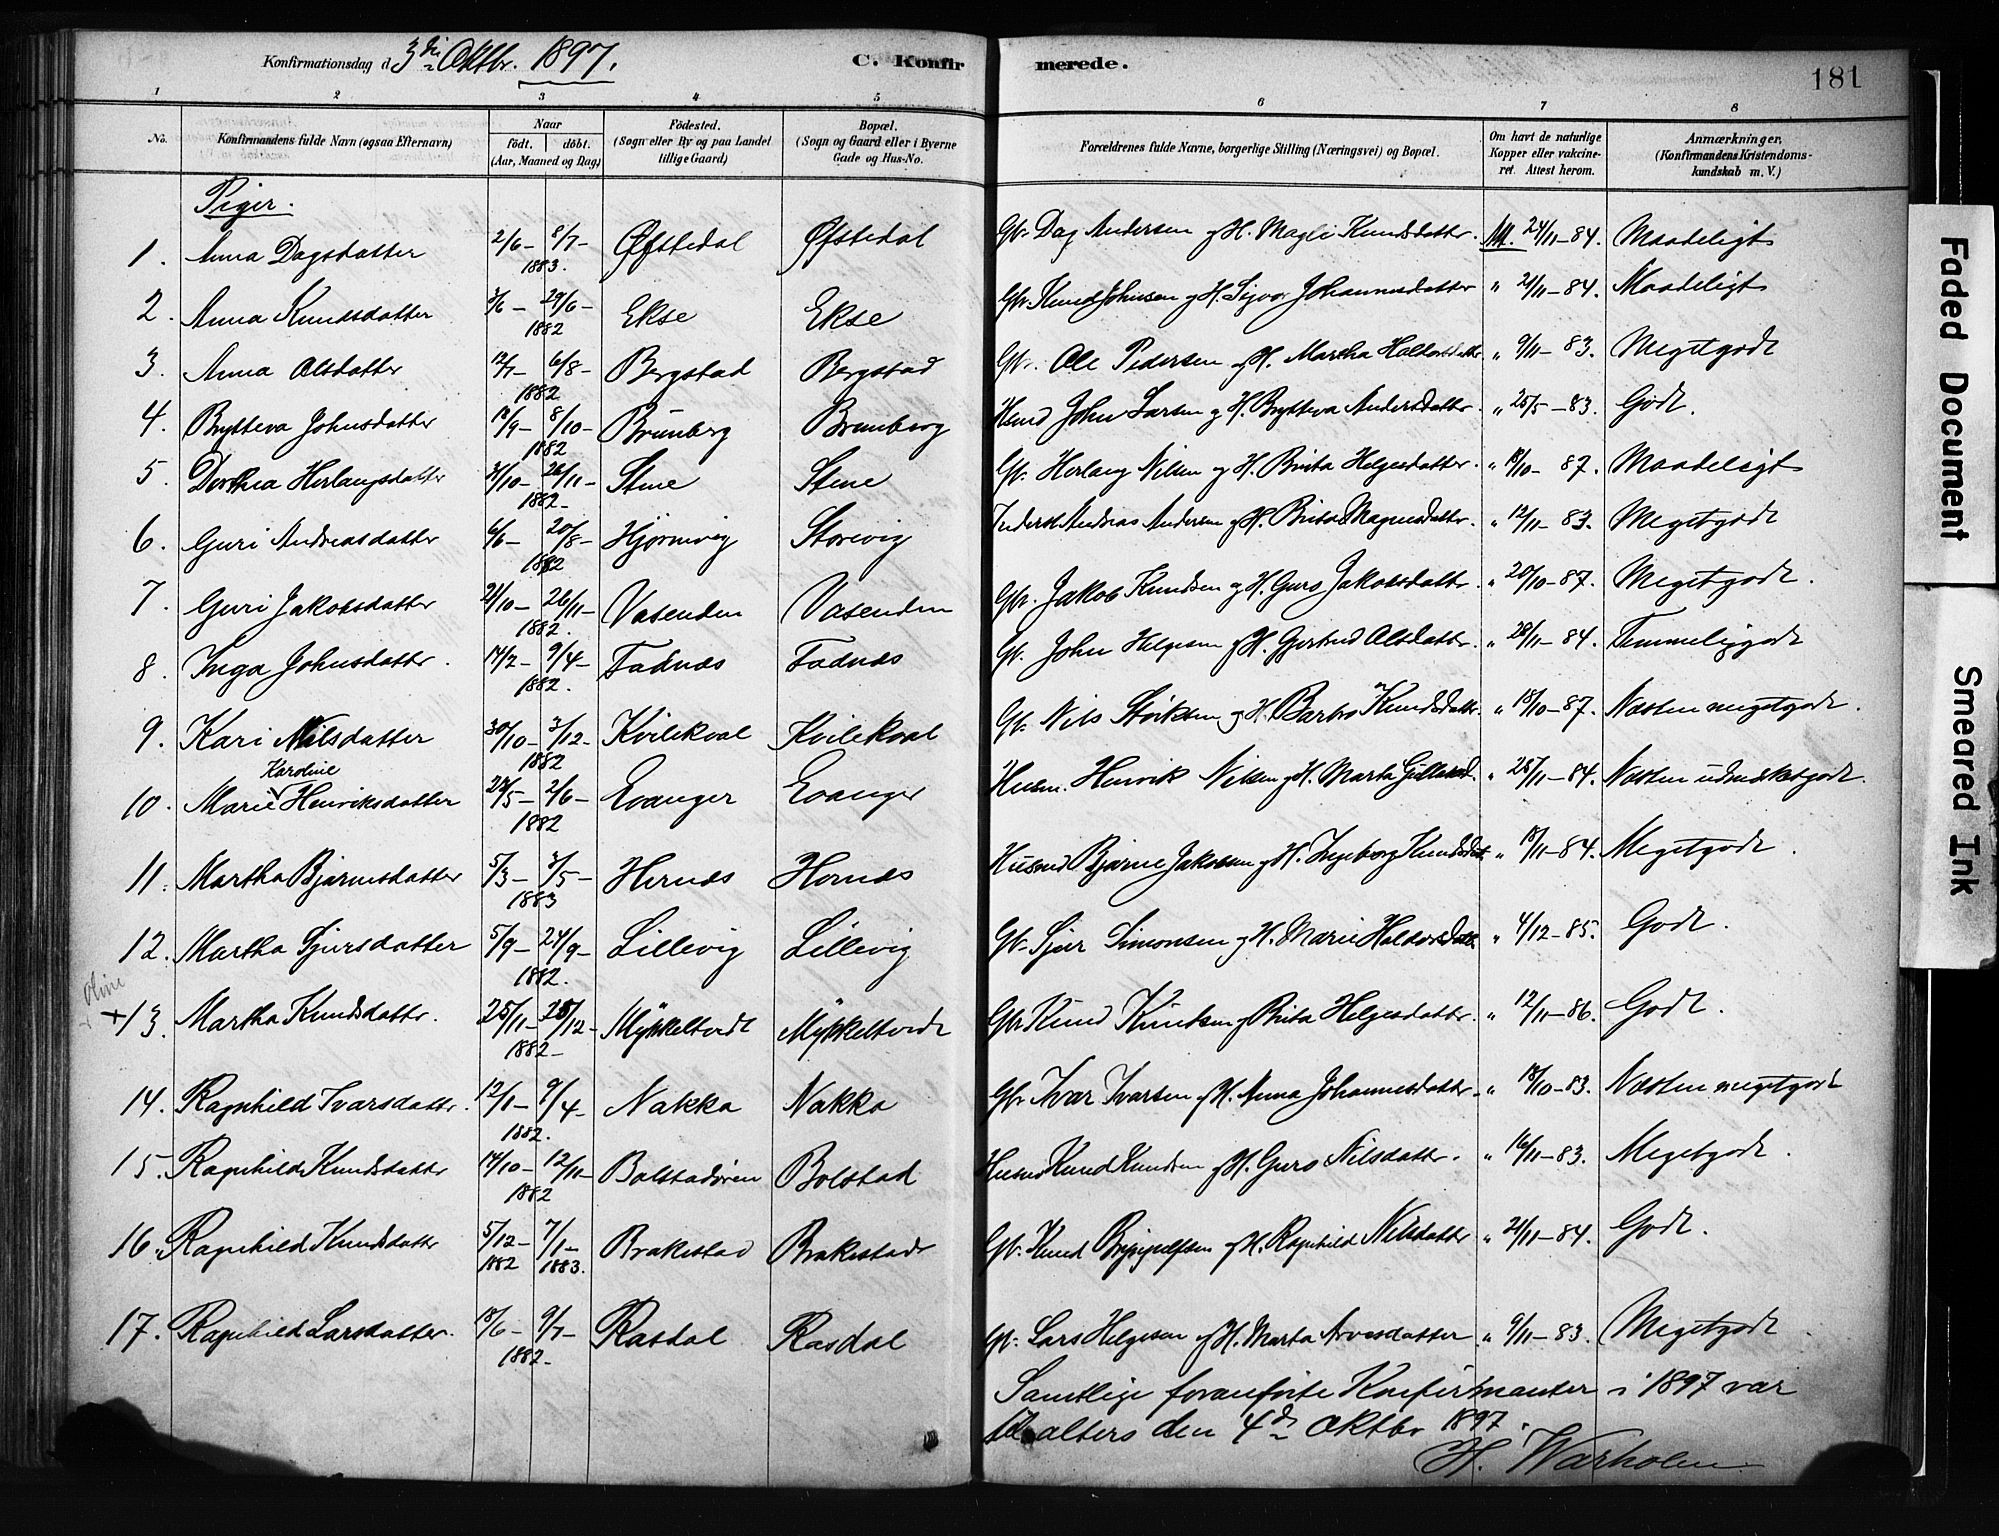 Konfirmationsdag d 3die Oktbr. 1897.
C. Konfirmerede.
181
1 2 3 4 5 6 7 8
No. Konfirmandens fulde Navn (ogsaa Efternavn) Naar født. døbt. (Aar, Maaned og Dag) Fødested. (Sogn eller By og paa Landet tillige Gaard) Bopæl. (Sogn og Gaard eller i Byerne Gade og Hus-No. Forældrenes fulde Navne, borgerlige Stilling (Næringsvei) og Bopæl. Om havt de naturlige Kopper eller vakcineret. Attest herom. Anmærkninger. (Konfirmandens Kristendomskundskab m. V.)
Piger.
1. Anna Dagsdatter 2/6- 8/7- 1883. Øfstedal Øfstedal Gb. Dag Andersen og H. Magli Knudsdatter. 24/11-84. Maadeligt
2. Anna Knudsdatter 3/6- 29/6- 1882 Ekse Ekse Gb. Knud Johnsen og H. Sigvor Johannesdatter " 21/11-84. Maadeligt
3. Anna Olsdatter 12/7- 6/8- 1882 Bergstad Bergstad Gb. Ole Pedersen og H. Martha Haldorsdatter " 9/11-83. Megetgodt
4. Brytteva Johnsdatter 18/9- 8/10- 1882 Brunberg Brunberg Husmd John Larsen og H. Brytteva Andersdatter. " 25/5-83. Godt.
5. Dorthea Herlaugsdatter 31/10- 26/11- 1882. Stene Stene Gb. Herlaug Nilsen og H. Brita Helgesdatter. " 18/10-87. Maadeligt
6. Guri Andreasdatter 6/6- 20/8- 1882 Hjørnevig Storevig Inderst Andreas Andersen og H. Brita Magnesdatter. " 12/11-83. Megetgodt
7. Guri Jakobsdatter 21/10- 26/11- 1882. Vasenden Vasenden Gb. Jakob Knudsen og H. Guro Jakobsdatter " 20/10-87. Megetgodt.
8. Inga Johnsdatter. 14/2- 9/4- 1882. Fadnes Fadnes Gb. John Helgesen og H. Gjertrud Olsdatter. " 28/11-84. Temmeliggodt
9. Kari Nilsdatter 30/10- 3/12- 1882 Kvilekval Kvilekval Gb. Nils Størksen og H. Barbro Knudsdatter. " 18/10-87. Næsten megetgodt.
Karoline
10. Marie Henriksdatter 24/5- 2/6- 1882 Evanger Evanger Husm. Henrik Nilsen og H. Marta " 28/11-84. Næsten udmærketgodt.
11. Martha Bjarnesdatter 5/3- 3/5- 1883 Hernes Hernes Husmd Bjarne Jakobsen og H. Ingeborg Knudsdat " 18/11-84. Megetgodt.
12. Martha Sjursdatter 5/9- 24/9- 1882. Lillevig Lillevig Gb. Sjur Simonsen og H. Marie Haldorsdatt. " 4/12-85. Godt.
Oline
+13. Martha Knudsdattr. 25/11- 28/12- 1882- Mykkeltvedt Mykkeltvedt Gb. Knud Knudsen og Brita Helgesdatter. " 12/11-86. Godt.
14. Ragnhild Ivarsdattr. 12/1- 9/4- 1882. Nakka Nakka Gb. Ivar Ivarsen og H. Anna Johannesdatter. " 18/10-83. Næsten megetgodt
15. Ragnhild Knudsdattr 14/10- 12/11- 1882 Bolstadøren Bolstad Husmd Knud Knudsen og H. Guro Nilsdatter. " 16/11-83. Megetgodt.
16. Ragnhild Knudsdatter 5/12- 1882 7/1- 1883. Brakestad Brakestad Gb. Knud Brynjulfsen og H. Ragnhild Nilsdatter " 21/11-84. Godt.
17. Ragnhild Larsdatter. 18/6- 9/7- 1882- Rasdal Rasdal Gb. Lars Helgesen og H. Marta Arvesdatter " 9/11-83. Megetgodt
Samtlige foranførte Konfirmanter i 1897 var
til alters den 4de Oktbr 1897.
H. Warholm
Faded Document
Smeared Ink